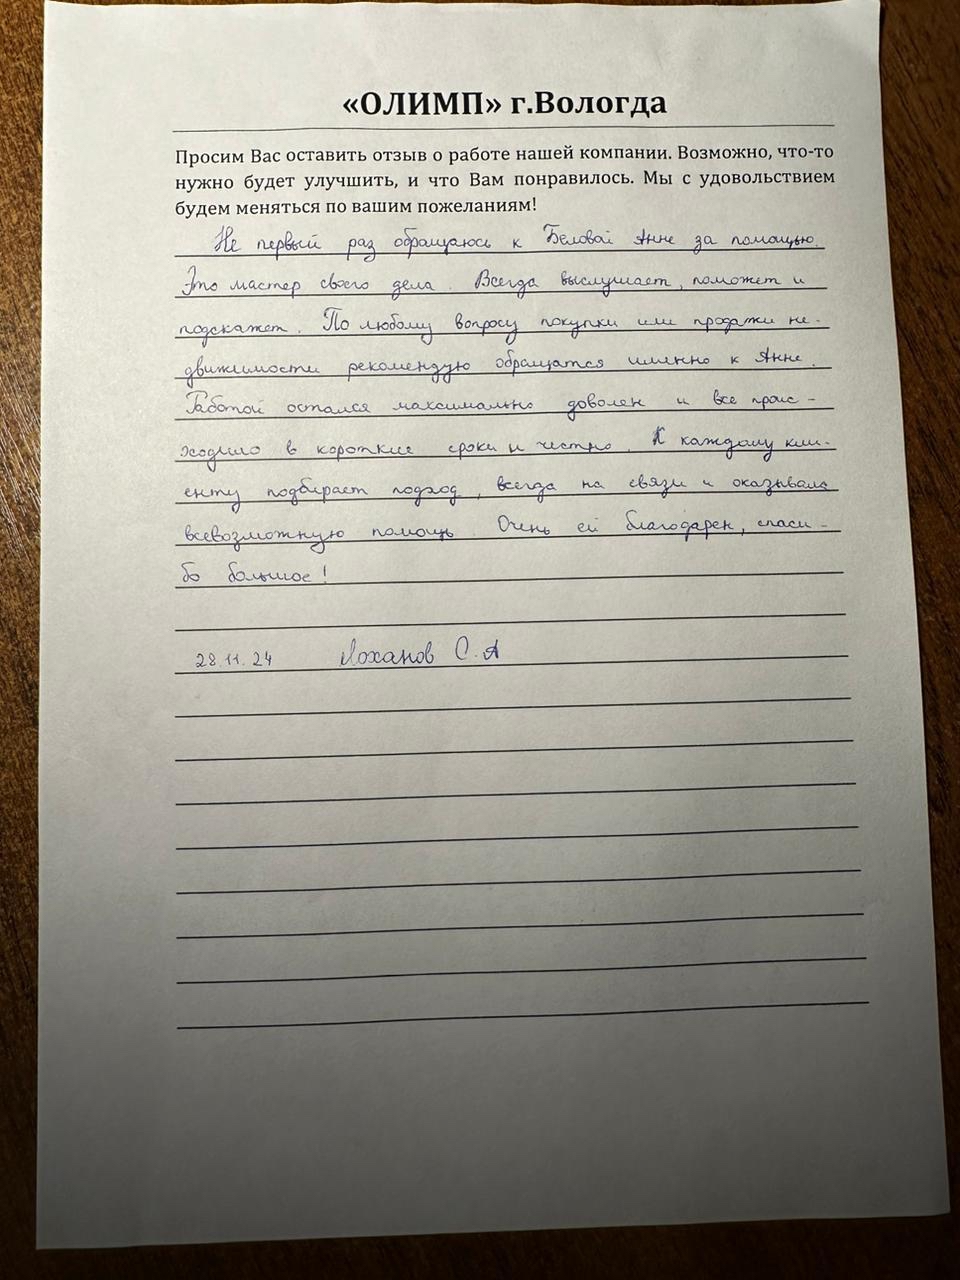 «ОЛИМП» г.Вологда
Просим Вас оставить отзыв о работе нашей компании. Возможно, что-то
нужно будет улучшить, и что Вам понравилось. Мы с удовольствием
будем меняться по вашим пожеланиям!
Не первый раз обращаюсь к Беловой Анне за помощью.
Это мастер своего дела. Всегда выслушает, поможет и
подскажет. По любому вопросу покупки или продажи не-
движимости рекомендую обращатся именно к Анне.
Работой остался максимально доволен и все проис-
ходило в короткие сроки и честно. К каждому кли-
енту подбирает подход, всегда на связи и оказывала
всевозможную помощь. Очень ей благодарен, спаси-
бо большое!
28.11.24 Лоханов С.А